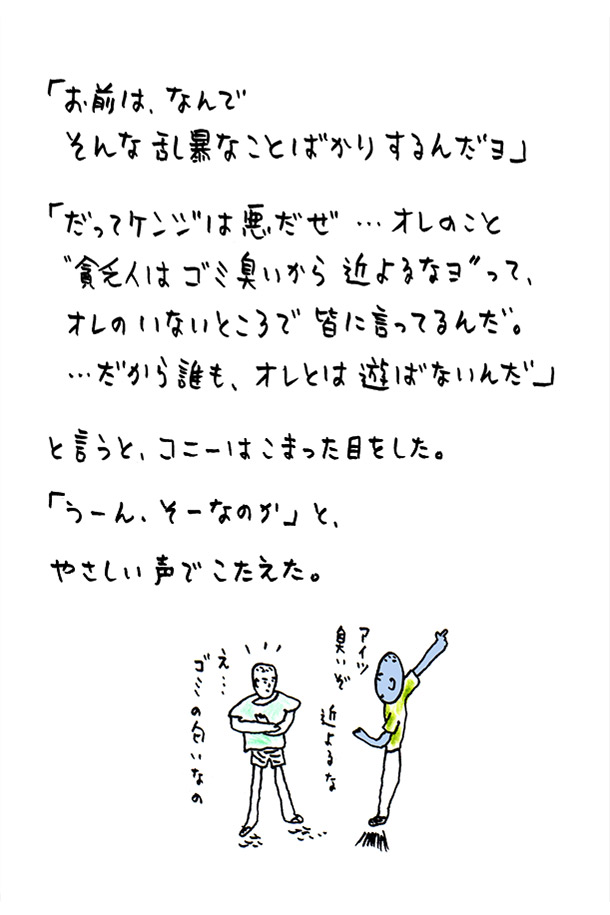 「お前は、なんで
そんな乱暴なことばかりするんだヨ」
「だってケンジは悪だぜ…オレのこと
〝貧乏人はゴミ臭いから近よるなヨ〟って、
オレのいないところで皆に言ってるんだ。
…だから誰も、オレとは遊ばないんだ」
と言うと、コニーはこまった目をした。
「うーん、そーなのか」と、
やさしい声でこたえた。
アイツ
臭いぞ
近よるな
え…
ゴミの匂いなの